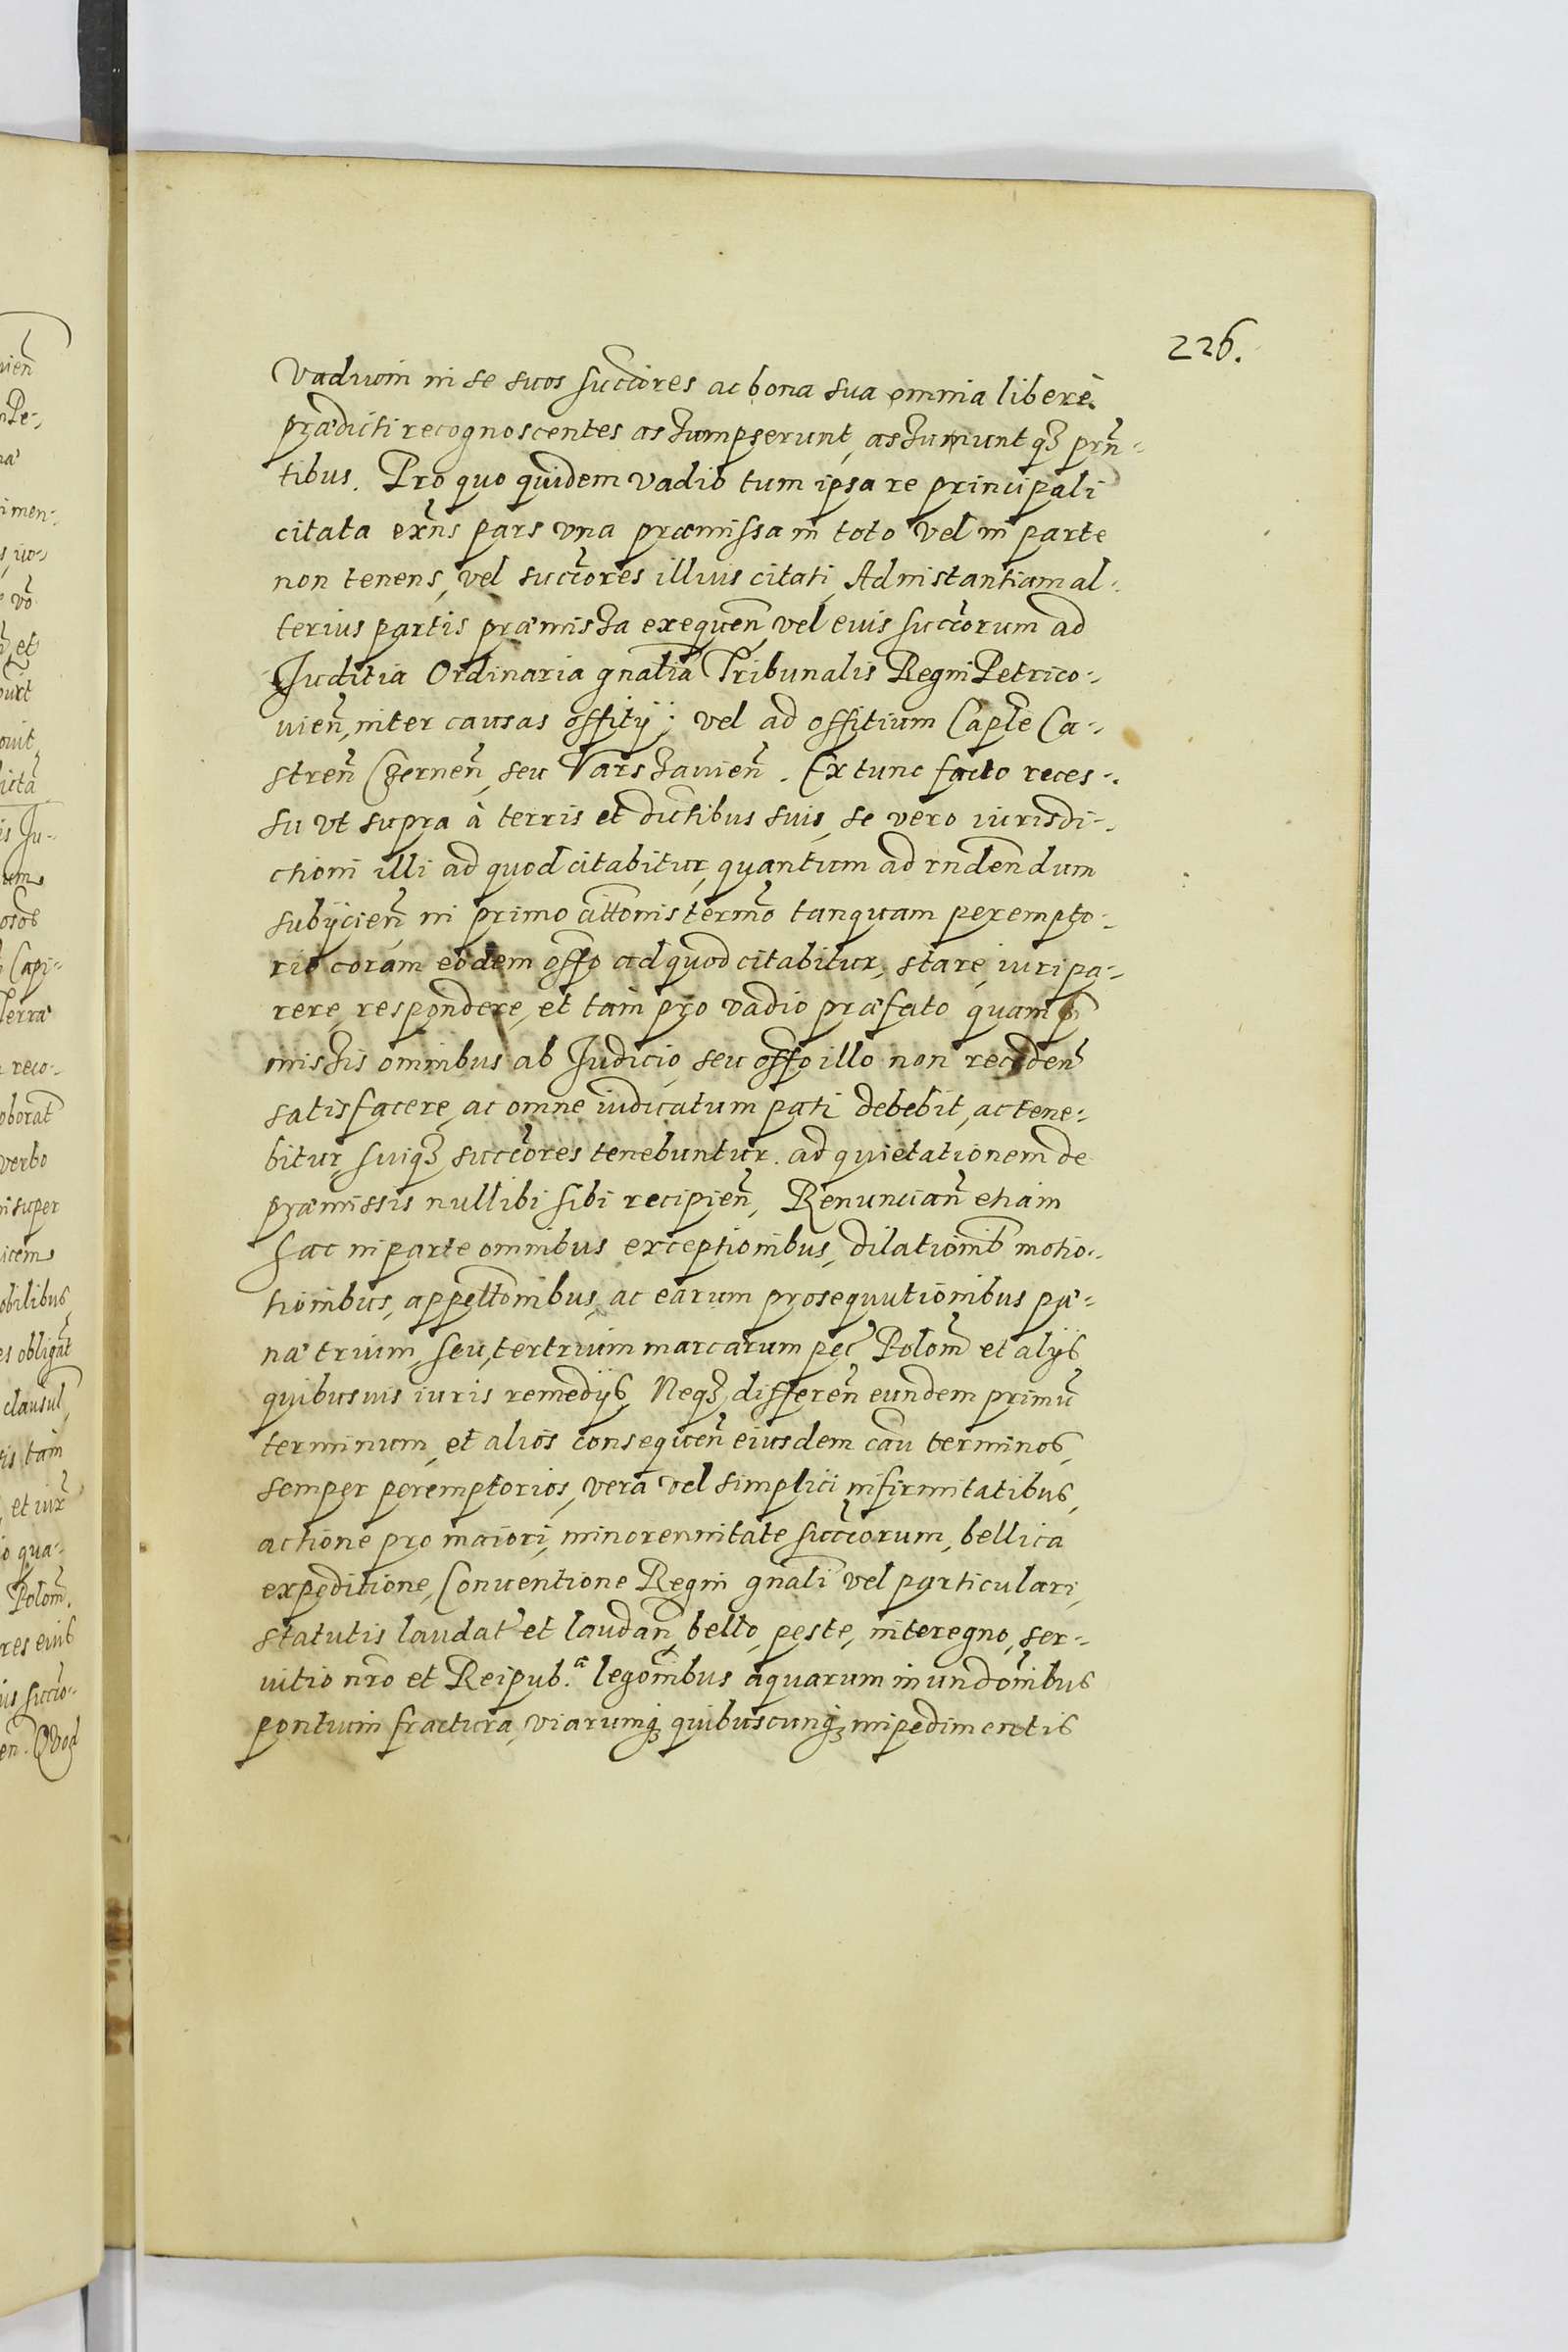 226.
Vadium in se suos succôres ac bona sua omnia liberè
prædicti recognoscentes assumpserunt, assumunt qз prñ-
tibus. Pro quo quidem vadio tum ipsa re principali
citata exñs pars una præmissa in toto vel in parte
non tenens, vel succôres illius citati, Ad instantiam al-
terius partis præmissa exequeñ, vel eius succôrum ad
Juditia Ordinaria gnalia Tribunalis Regni Petrico-
uieñ, inter causas offitij; vel ad offitium Caplê Ca-
streñ Czerneñ, seu Varssauieñ. Ex tunc facto reces-
su ut supra à terris et dictibus suis, se vero iurisdi-
ctioni illi ad quod citabitur, quantum ad rndendum
subijcieñ in primo cittonis termo tanquam perempto-
rio coram eodem offo ad quod citabitur, stare, iuri pa-
rere, respondere, et tam pro vadio præfato quam p
missis omnibus ab Judicio, seu offo illo non recedeñ
satisfacere, ac omne iudicatum pati debebit, ac tene-
bitur suiqз succôres tenebuntur. ad quietationem de
præmissis nullibi sibi recipieñ, Renuncian̄ etiam
hac in parte omnibus exceptionibus, dilationib motio-
tionibus, appellonibus, ac earum prosequutionibus pæ-
na trium, seu, ter trium marcarum pec Polom et alijs
quibusuis iuris remedijs, Neqз differeñ eundem primū
terminum, et alios consequeñ eiusdem cau terminos,
semper peremptorios, vera vel simplici infirmitatibus,
actione pro maiori, minorennitate succôrum, bellica
expeditione, Conuentione Regni gnali vel particulari,
statutis laudat et laudan, bello, peste, interegno, ser-
uitio nro et Reipub.ᵃ legonibus aquarum inundonibus
pontium fractura, viarumqз quibuscunqз impedimentis